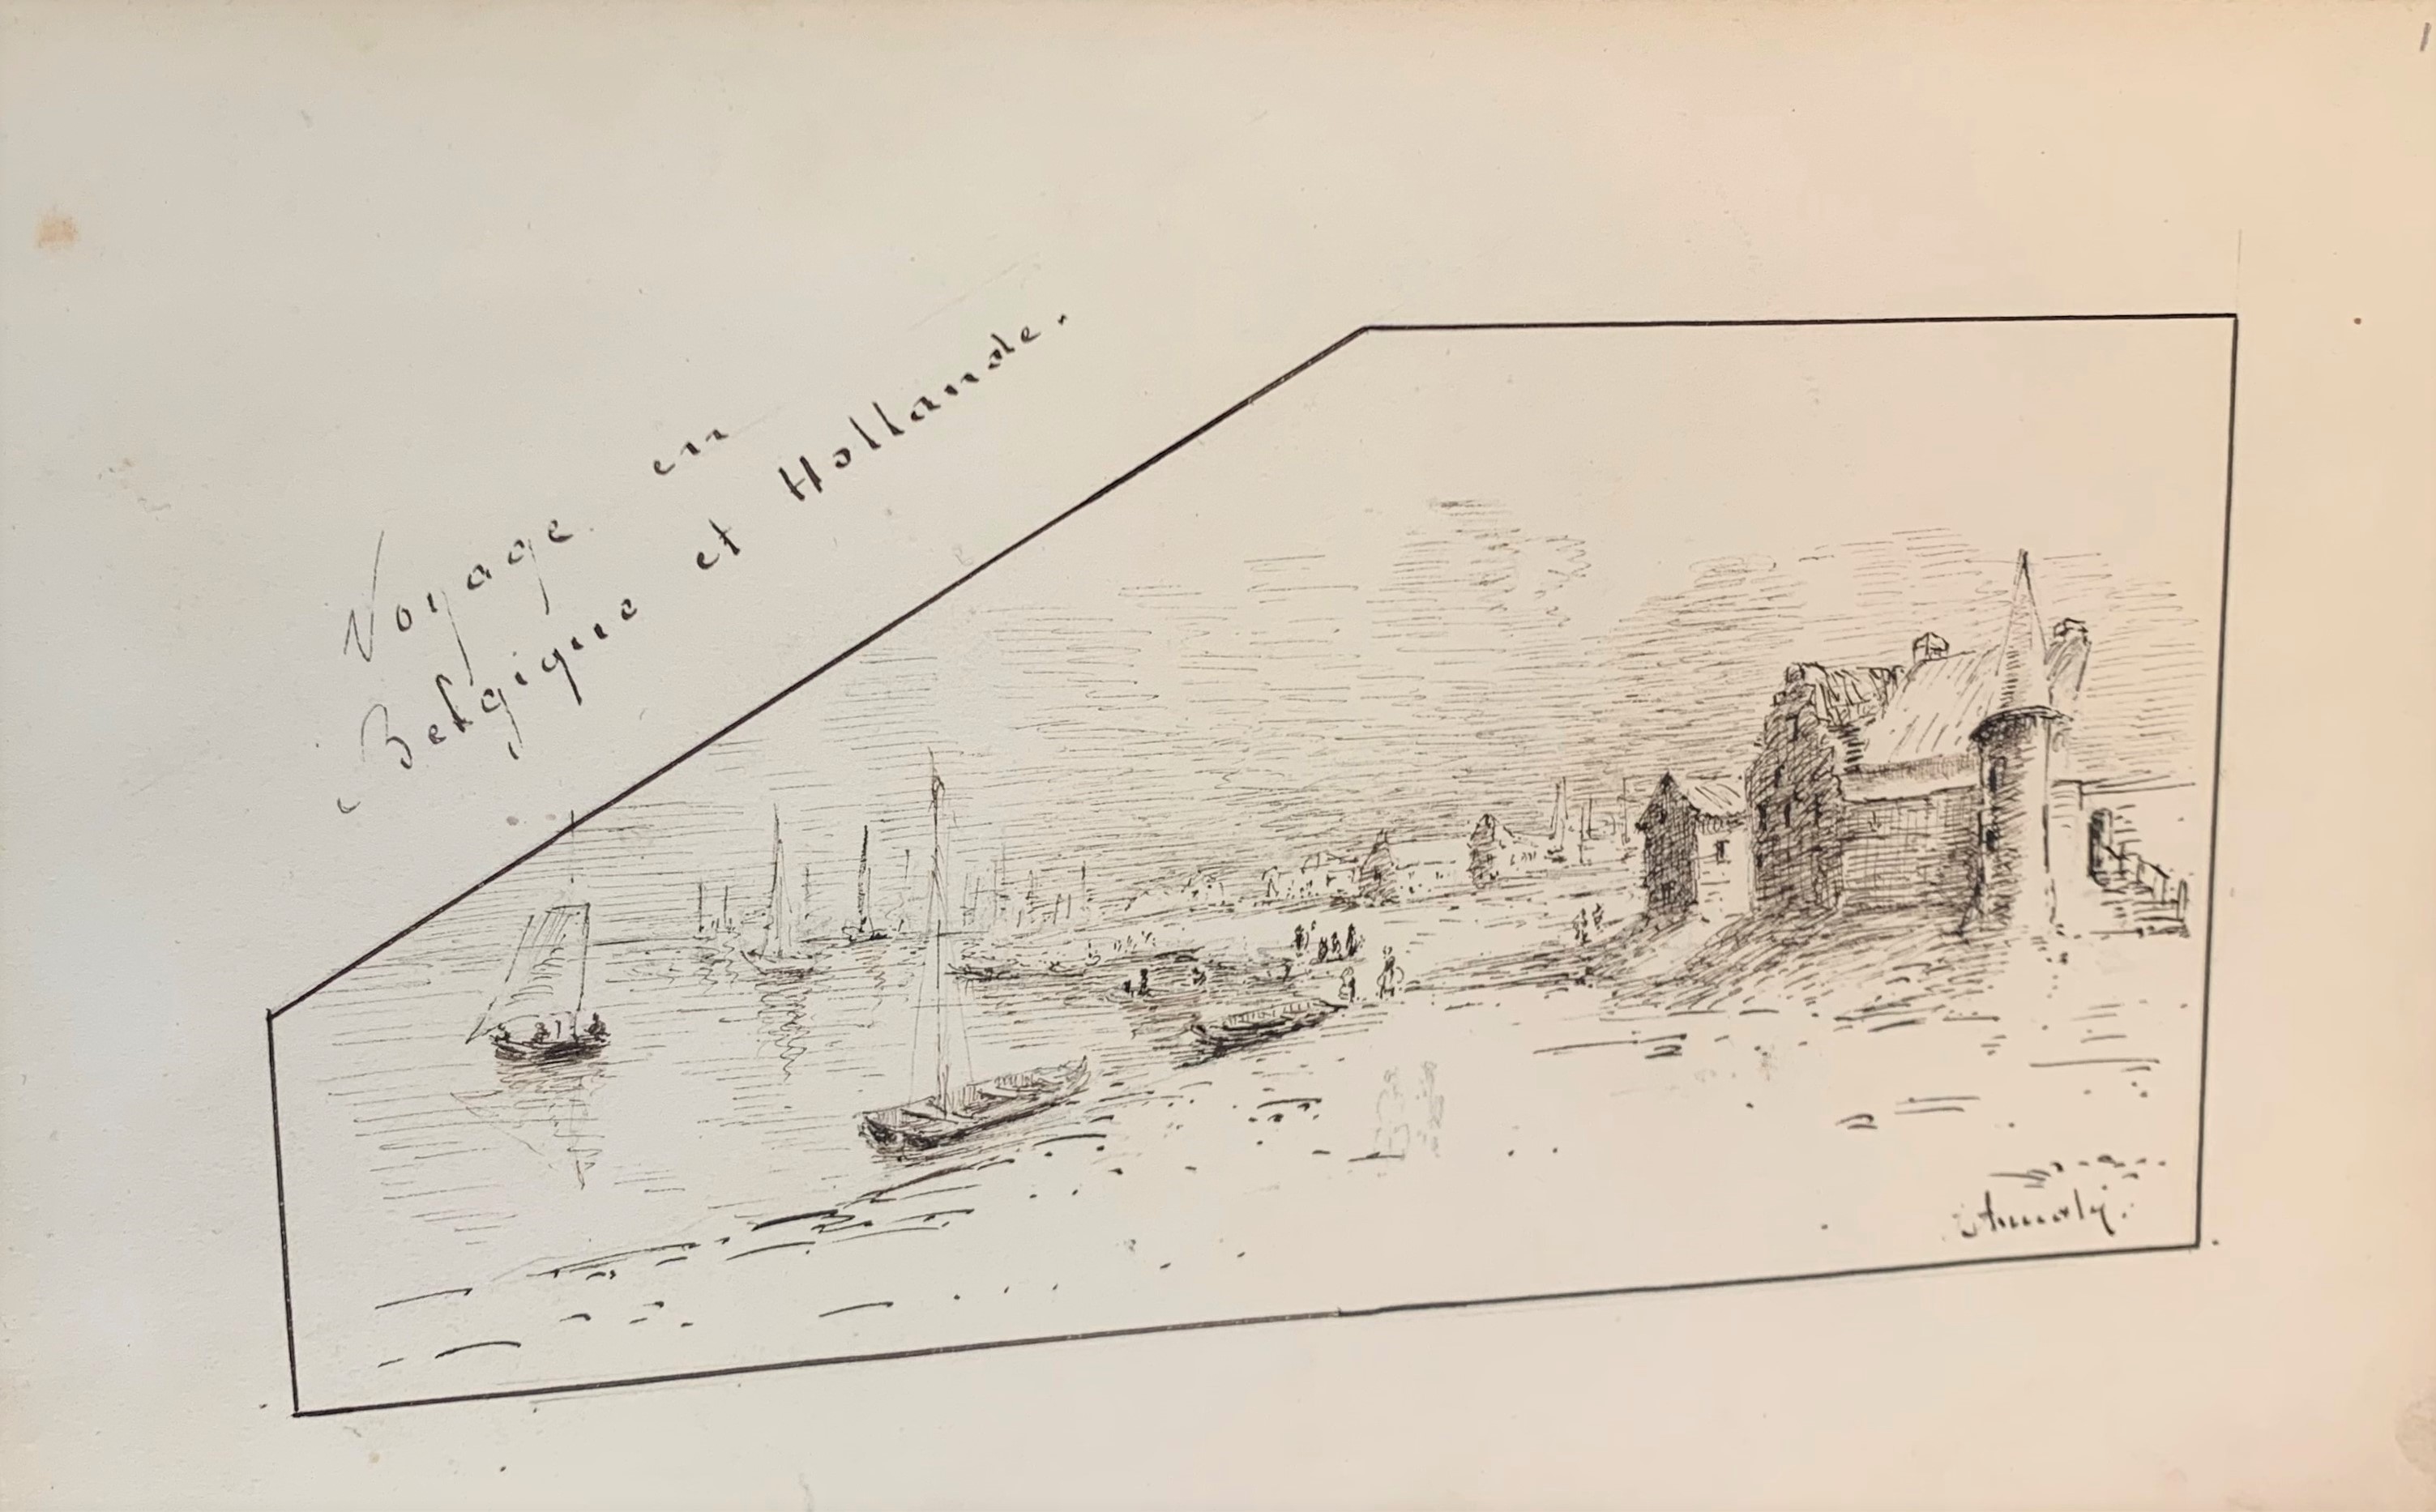 Voyage en
Belgique et Hollande.
1